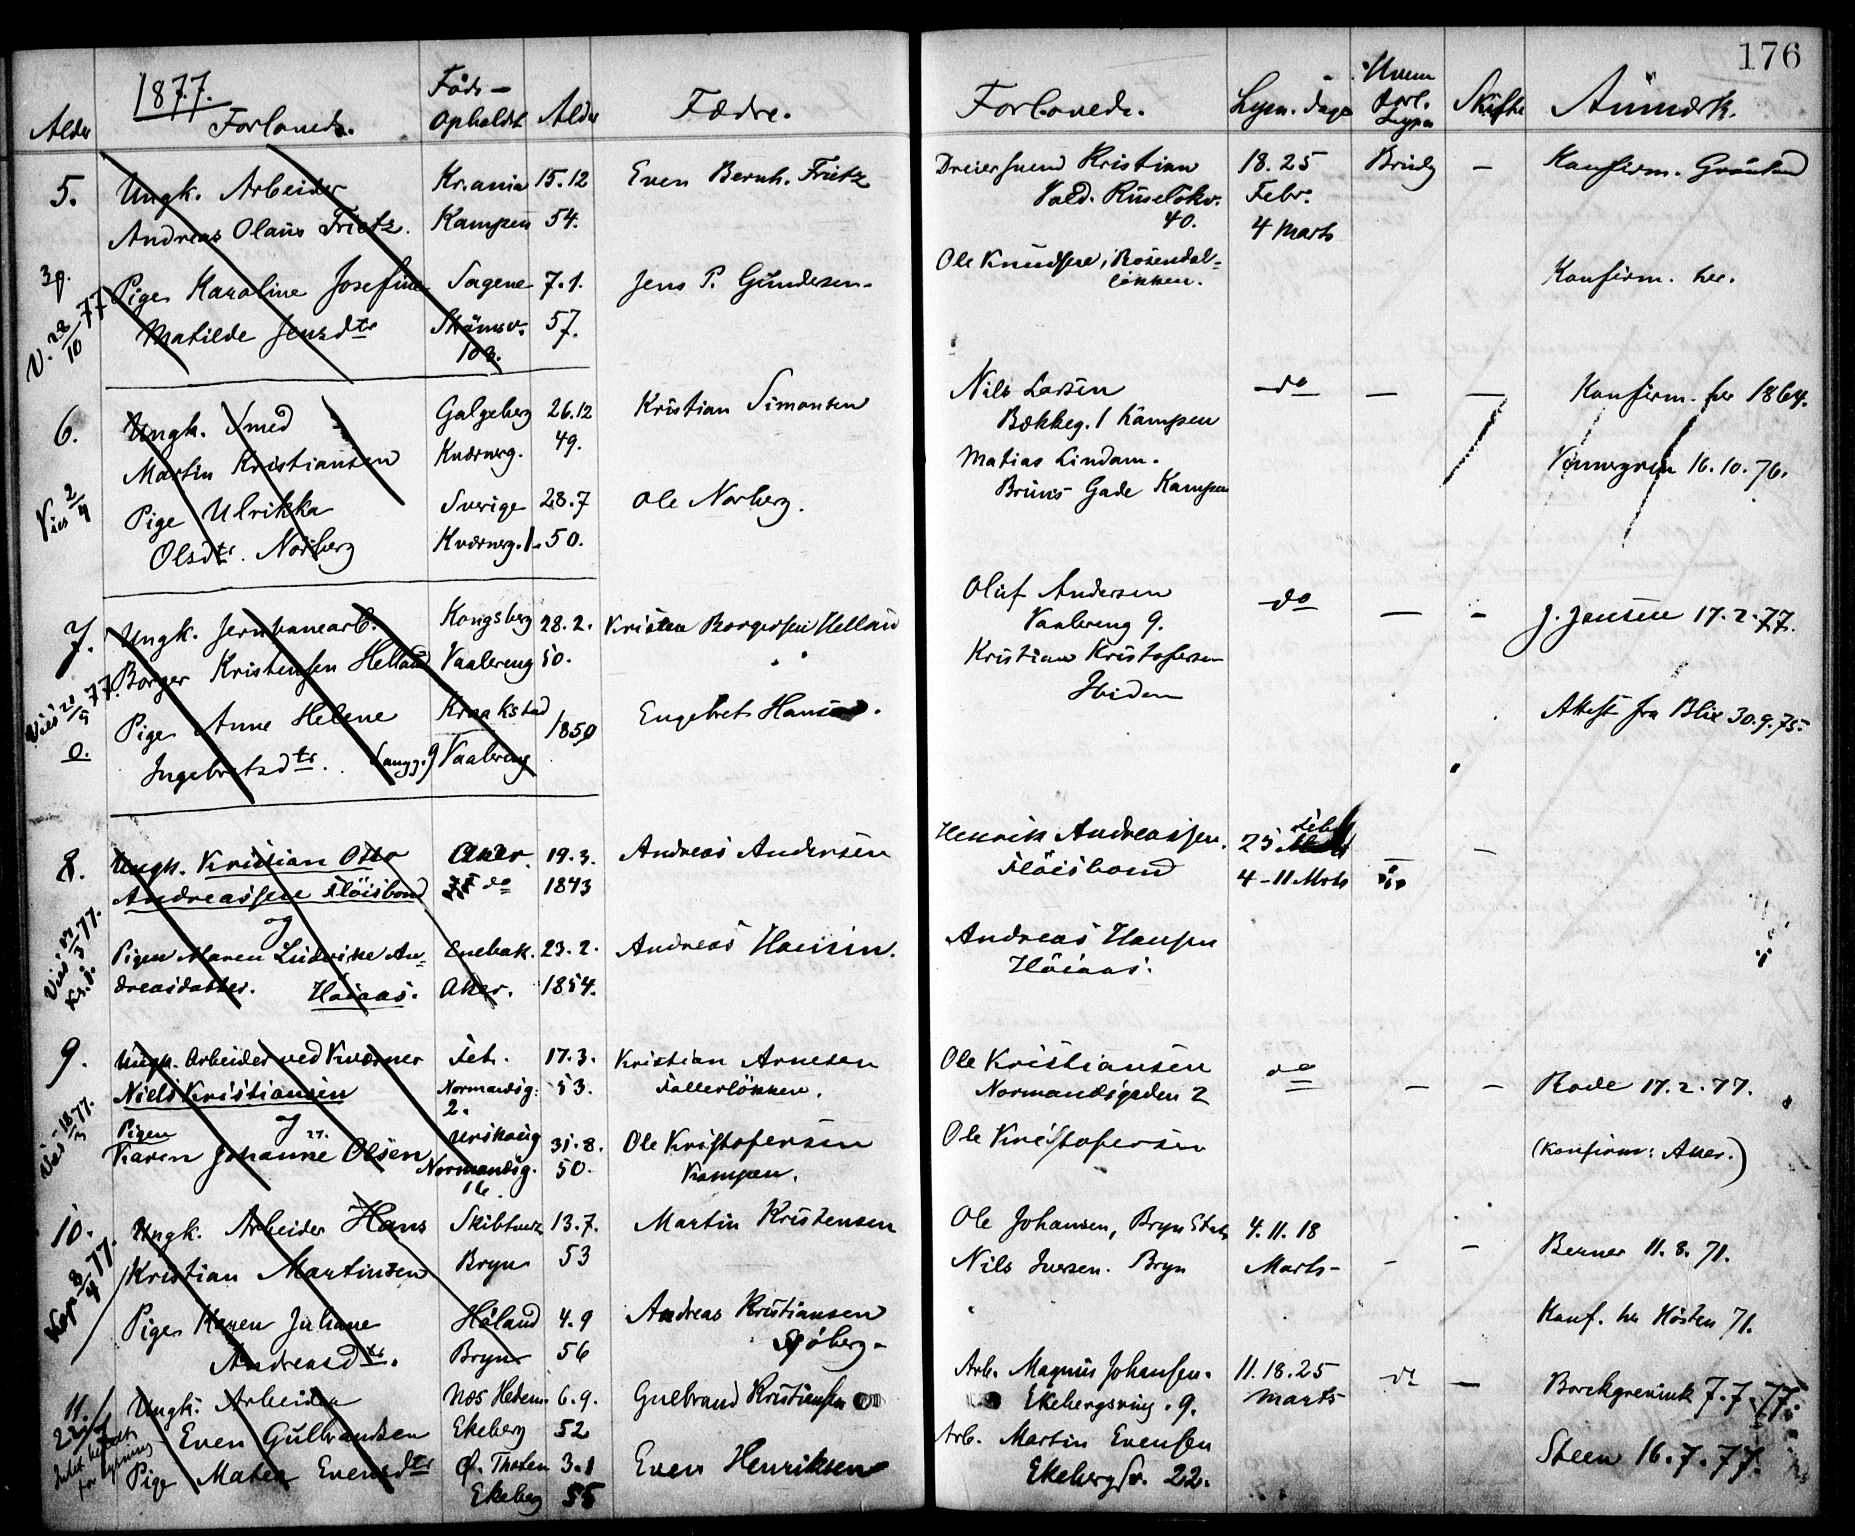 176
1877.
Alder Forlovede. Føds- Opholdst Alder Fædre. Forlovede. Lysn. Dage Hvem Forl. Lysn Skifte Anmærk.
5. Ungk. Arbeider Kr.ania 15.12 Even Bernh. Fritz Dreiersvend Kristian 18. 25 Brudg — Konfirm. Grönland
Andreas Olaus Fritz. Kampen 54. Vald. Ruselökv. 40. Febr. 4 Marts
Pige Karoline Josefine Sagene 7.1. Jens P. Gundersen. Ole Knudsen, Rosendal- Konfirm. her.
Matilde Jensdtr 103. 57. lökken.
V. 28/10 77
6. Ungk. Smed Galgeberg 26.12 Kristian Simonsen Nils Larsen do — — Konfirm. her 1864.
Martin Kristiansen Kværnerg. 49. Bækkeg. 1 Kampen
Matias Lindam. 16.10.76.
Pige Ulrikka Sverige 28.7 Ole Norberg. Bruns Gade Kampen
Olsdtr. Norberg Kværnerg. 1. 50.
Vies 2/4
7. Ungk. Jernbanearb. Kongsberg 28.2. Kristen Borgersen Helland Oluf Andersen do — - J. Jensen 17.2.77.
Borger Kristensen Helland Vaalereng 50. Vaalereng 9.
Kristian Kristofersen
Pige Anne Helene Kraakstad 1850 Engebret Hansen. Ibidem Attest fra Blix 30.9.75.
Ingebretsdtr. Langg. 9 Vaalereng
0.
8. Ungk. Kristian Otto Aker 19.3. Andreas Andersen Henrik Andreassen. 25 Feb — —
Andreassen Flöisbond do 1843 Flöisbond 4-11 Mrts
og
Pigen Maren Ludvike An- Enebak. 23.2. Andreas Hansen. Andreas Hansen
dreasdatter. Höiaas. Aker. 1854. Höiaas.
9. Ungk. Arbeider ved Kværner Fet. 17.3. Kristian Arnesen Ole Kristiansen do — — Rode 17.2.77.
Niels Kristiansen Normandsg. 2. 53. Fallerlökken. Normandsgaden 2
Vies 18/3 77.
Pigen
Karen Johanne Olsen 31.8. Ole Kristofersen Ole Kristofersen (Konfirm: Aker.)
Normandsg. 16. 50. Kampen.
10. Ungk. Arbeider Hans Skibtvet 13.7. Martin Kristensen Ole Johansen, Bryn 4. 11. 18 - — Berner 11.8.71.
Kristian Martinsen Bryn 53 Nils Iversen. Bryn Marts-
8/4 77.
Pige Karen Juliane Höland 4.9 Andreas Kristiansen Konf. her Hösten 71.
Andreasdtr. Bryn 56 Sjöberg.
11. Ungk. Arbeider Næs Hedem. 6.9. Gulbrand Kristiansen Arb. Magnus Johansen. 11.18.25 do — Borchgrevink 7.7.77.
Even Gulbrandsen Ekeberg 52 Ekebergsving. 9. Marts
Pige Matea Evensdtr Ø. Thoten 3.1 Even Henriksen Arb. Martin Evensen Steen 16.7.77.
Ekeberg 55 Ekebergsv. 22.